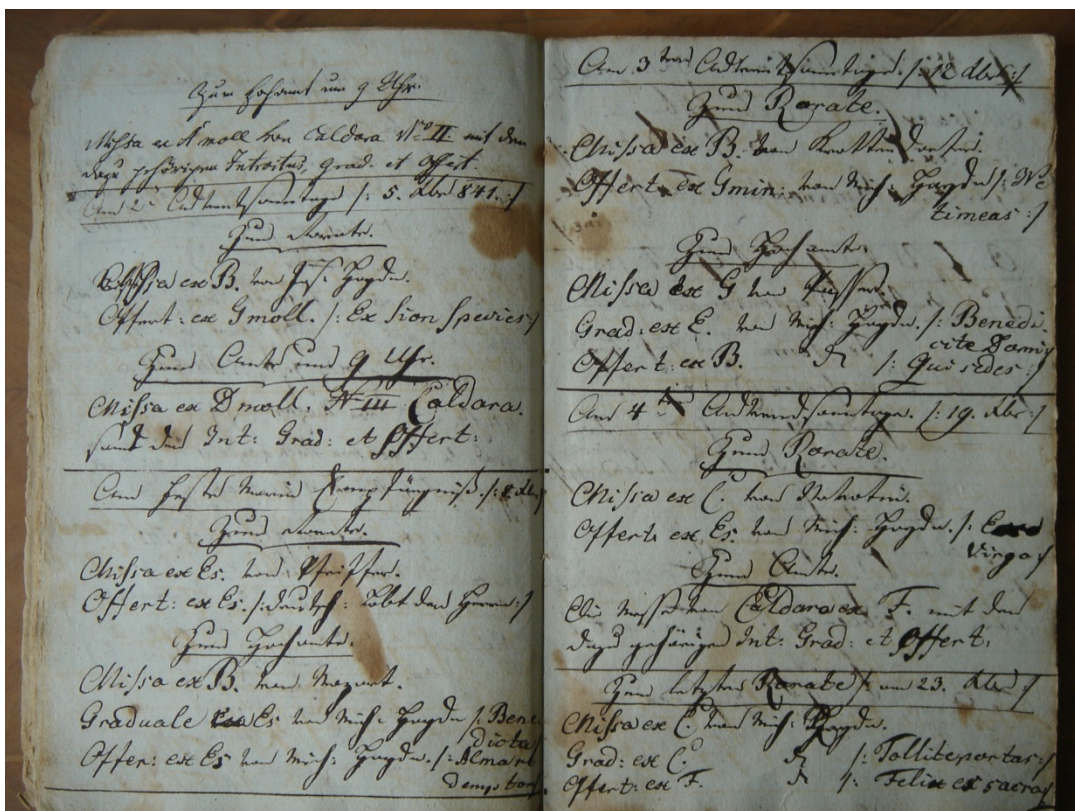 Zum Hohamt um 9 Uhr.
Missa ex A moll von Caldara No II. mit dem
dazu gehörigen Introitus, Grad. et Offert.
Am 2t Adventsonntage /: 5. Xbr 841. :/
Zum Rorate.
Missa ex B. von Jos. Haydn.
Offert: ex G moll. /: Ex Sion species :/
Zum Amte um 9 Uhr.
Missa ex D moll. No III. Caldara.
samt den Int: Grad: et Offert:
Am Feste Mariä Empfängniß. /: 8. Xbr :/
Zum Rorate.
Missa ex Es. von Pfeiffer.
Offert: ex Es. /: deutsch: Lobt den Herrn :/
Zum Hochamte.
Missa ex B. von Mozart.
Graduale ex Es von Mich: Haydn /: Bene
dicta :/
Offer: ex Es von Mich: Haydn. /: Alma
Am 3ten Adventsonntage. /: 12 Xbr :/
Zum Rorate.
Missa ex B. von
Offert: ex G min: von Mich: Haydn /: Ne
timeas :/
Zum Hochamte.
Missa ex G von
Grad: ex E. von Mich: Haydn. /: Benedi
cite Domi
Offert: ex B. /: Qui sedes :/
Am 4ten Adventsonntage. /: 19. Xbr :/
Zum Rorate.
Missa ex C. von
Offert: ex Es. von Mich: Haydn. /:
Virgo :/
Zum Amte.
Die Messe von Caldara ex F. mit den
dazu gehörigen Int: Grad: et Offert:
Zum letzten Rorate /: am 23. Xbr :/
Missa ex C. von Mich: Haydn.
Grad: ex C. /: Tollite portas :/
Offert: ex F. /: Felix es sacra :/